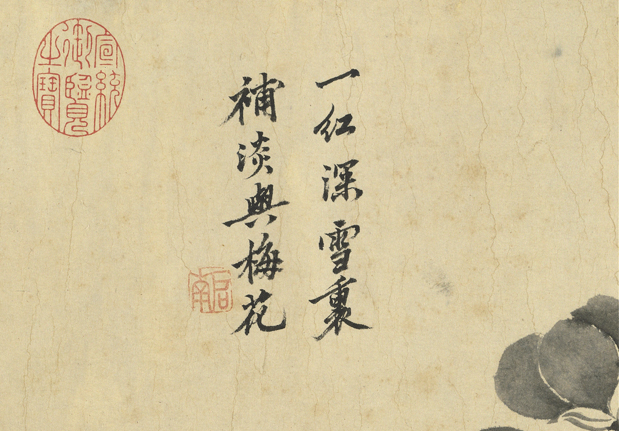 一紅深雪裏
補淡與梅花
宣統御覽之寶
啟南